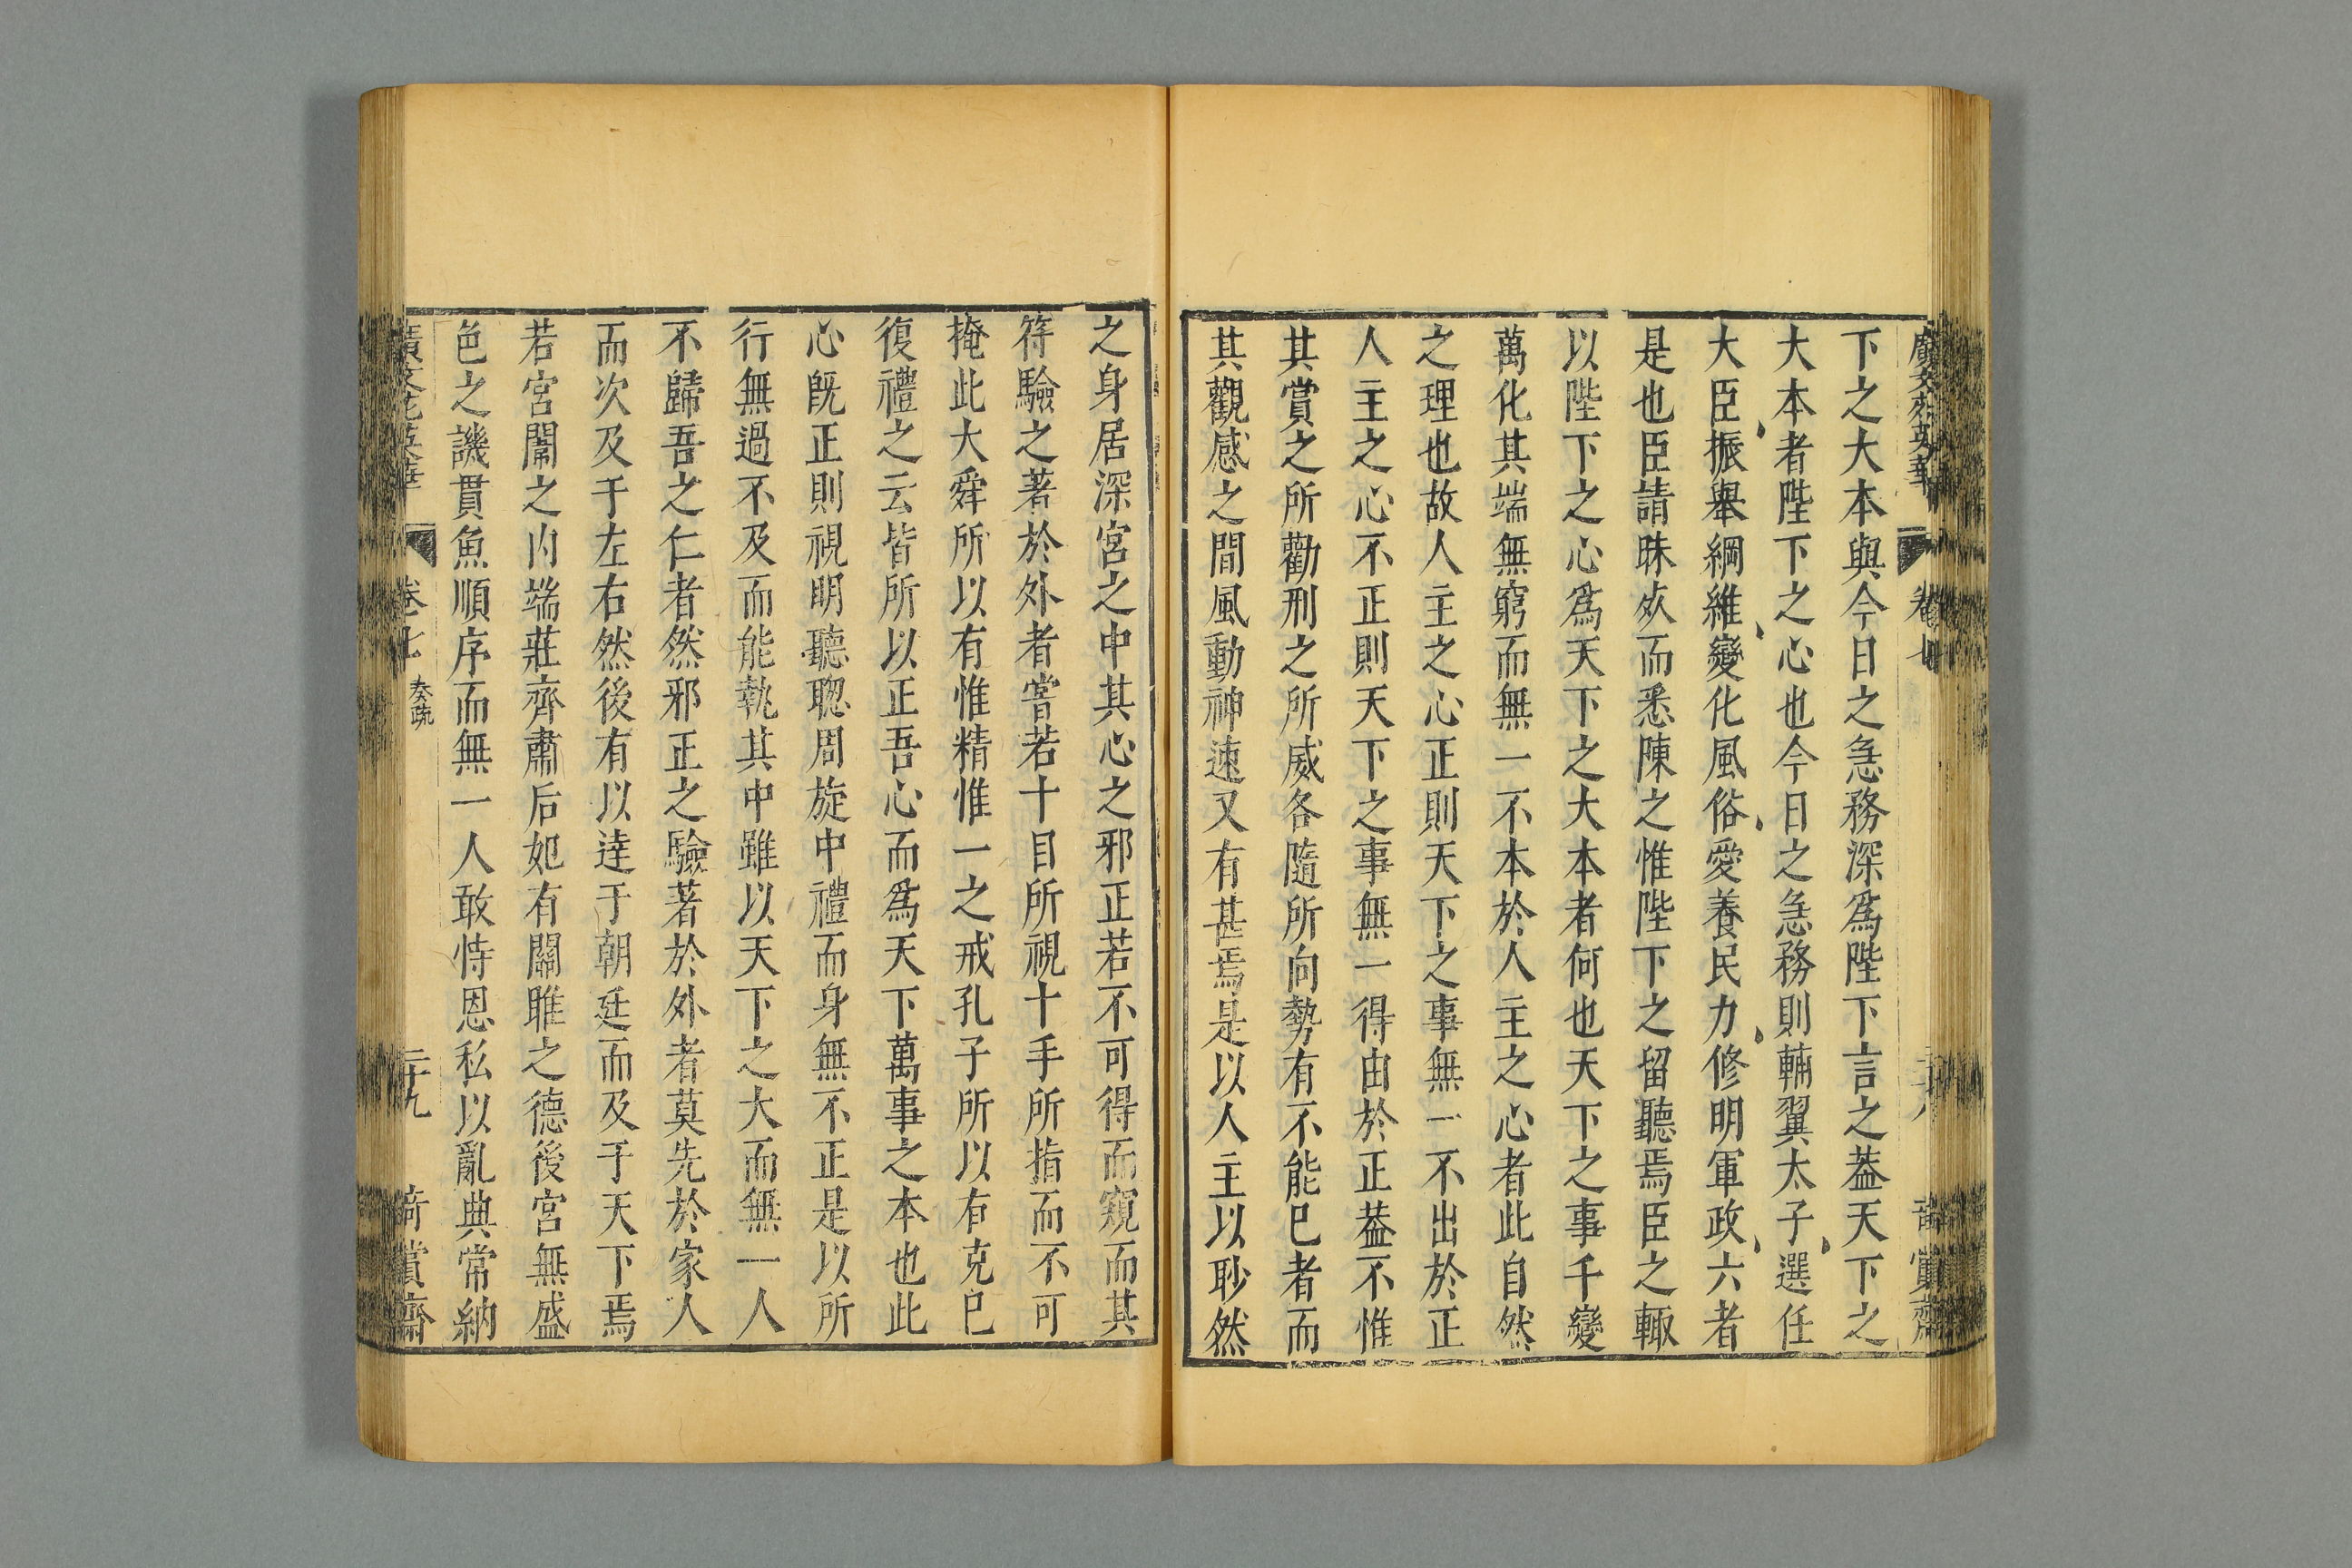 廣文苑英華 卷七 賞齋
下之大本與今日之急務深爲陛下言之葢天下之
大本者陛下之心也今日之急務則輔翼太子選任
大臣振舉綱維變化風俗愛養民力修明軍政六者
是也臣請昧死而悉陳之惟陛下之留聽焉臣之輙
以陛下之心爲天下之大本者何也天下之事千變
萬化其端無窮而無一不本於人主之心者此自然
之理也故人主之心正則天下之事無一不出於正
人主之心不正則天下之事無一得由於正葢不惟
其賞之所勸刑之所威各隨所向勢有不能已者而
其觀感之間風動神速又有甚焉是以人主以眇然
之身居深宮之中其心之邪正若不可得而窺而其
符驗之著於外者嘗若十目所視十手所指而不可
掩此大舜所以有惟精惟一之戒孔子所以有克已
復禮之云皆所以正吾心而爲天下萬事之本也此
心旣正則視明聽聰周旋中禮而身無不正是以所
行無過不及而能執其中雖以天下之大而無一人
不歸吾之仁者然邪正之驗著於外者莫先於家人
而次及于左右然後有以達于朝廷而及于天下焉
若宮闈之内端莊齊肅后妃有關雎之德後宮無盛
色之譏貫魚順序而無一人敢恃恩私以亂典常納
廣文苑英華 卷七 奏疏 二十九 倚賞齋